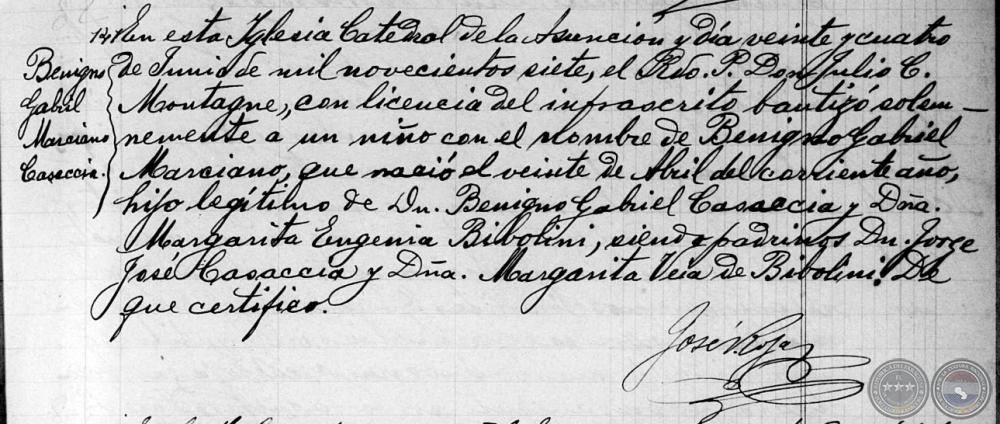 En esta Iglesia Catedral de la Asuncion y día veinte y cuatro
Benigno
de Junio de mil novecientos siete, el Rdo. P. Don Julio C.
Gabriel
Montagne, con licencia del infrascrito bautizó solem-
Marciano
nemente a un niño con el nombre de Benigno Gabriel
Casaccia.
Marciano, que nació el veinte de Abril del corriente año,
hijo legítimo de Dn. Benigno Gabriel Casaccia y Dña.
Margarita Eugenia Bibolini, siendo padrinos Dn. Jorge
José Casaccia y Dña. Margarita Vera de Bibolini. De
que certifico.
José V. Rojas